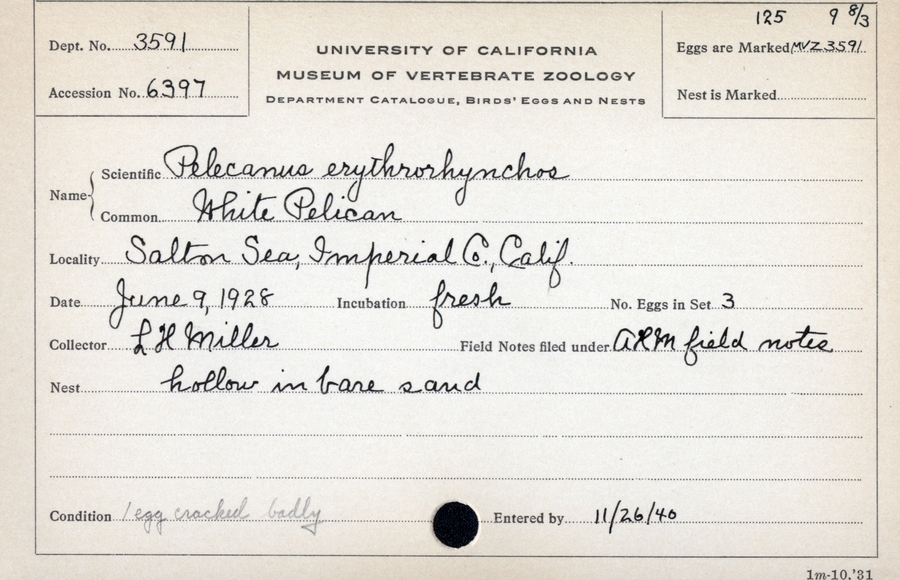 125 9 8/3
Dept. No. 3591
UNIVERSITY OF CALIFORNIA
Eggs are Marked MVZ 3591
MUSEUM OF VERTEBRATE ZOOLOGY
Accession No. 6397
DEPARTMENT CATALOGUE, BIRDS' EGGS AND NESTS
Nest is Marked
Name Scientific Pelecanus erythrorhynchos
Common White Pelican
Locality Salton Sea, Imperial Co., Calif.
Date June 9, 1928 Incubation fresh No. Eggs in Set 3
Collector L H Miller Field Notes filed under AHM field notes
Nest hollow in bare sand
Condition 1 egg cracked badly Entered by 11/26/40
1m-10,'31